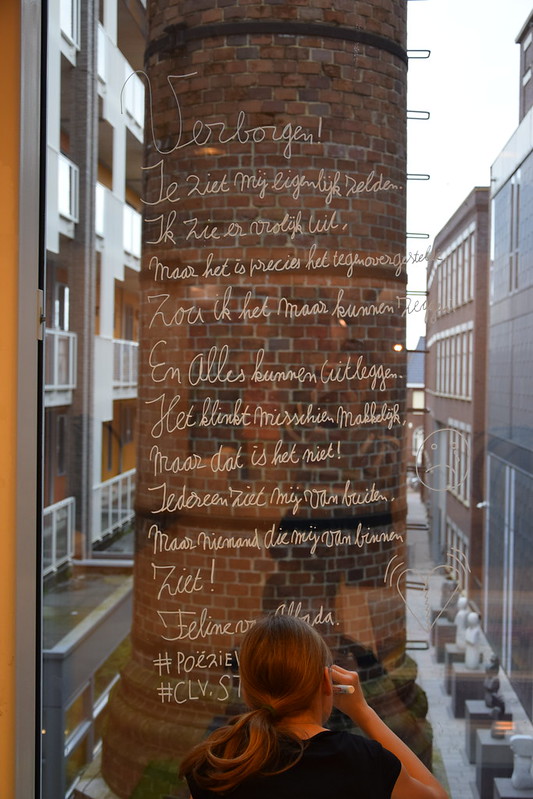 Verborgen!
Je ziet mij eigenlijk zelden.
Ik zie er vrolijk uit,
Maar het is precies het tegenovergestel
Zou ik het maar kunnen
En Alles kunnen uitleggen.
Het klinkt misschien makkelijk,
Maar dat is het niet!
Iedereen ziet mij van buiten.
Maar niemand die mij van binnen
Ziet!
Feline
#POËZIE
#CLV.ST